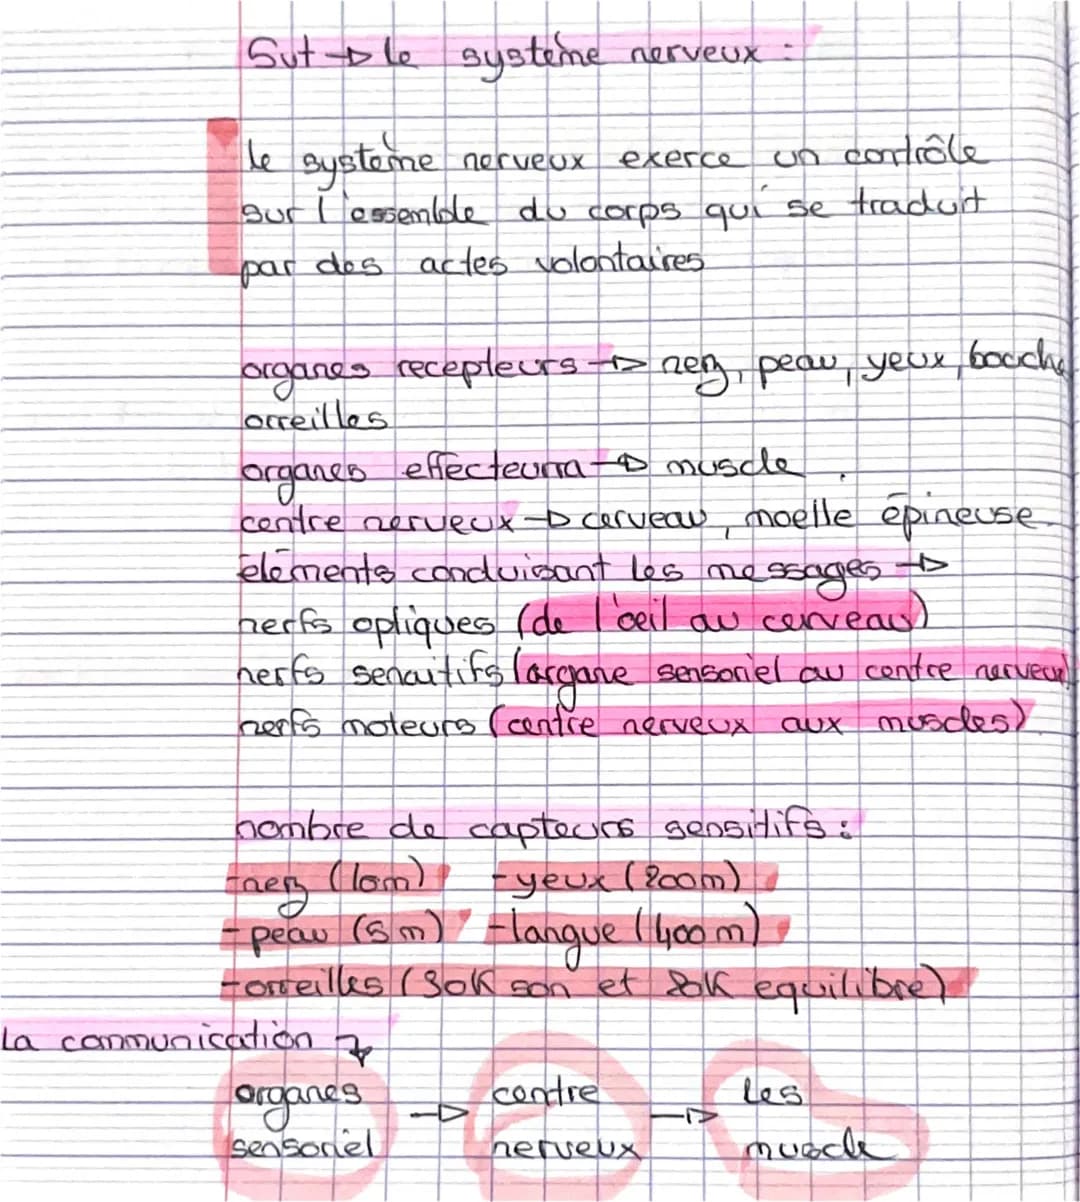 Svt → le système nerveux :
le système nerveux exerce un contrôle
sur l'essemble du corps qui se traduit
par des actes volontaires
organes recepteurs → nez, peau, yeux, bouche
orreilles
organes effecteurra → muscle
centre nerveux → cerveau, moelle épineuse
éléments conduisant les messages →
nerfs optiques (de l'oeil au cerveau)
nerfs sensitifs (organe sensoriel au centre nerveux)
nerfs moteurs (centre nerveux aux muscles)
nombre de capteurs sensitifs :
-nez (10m) -yeux (200m)
-peau (5m) -langue (400m)
-orreilles (30K son et 20K equilibre)
La communication
organes → centre → les
sensoriel nerveux muscle